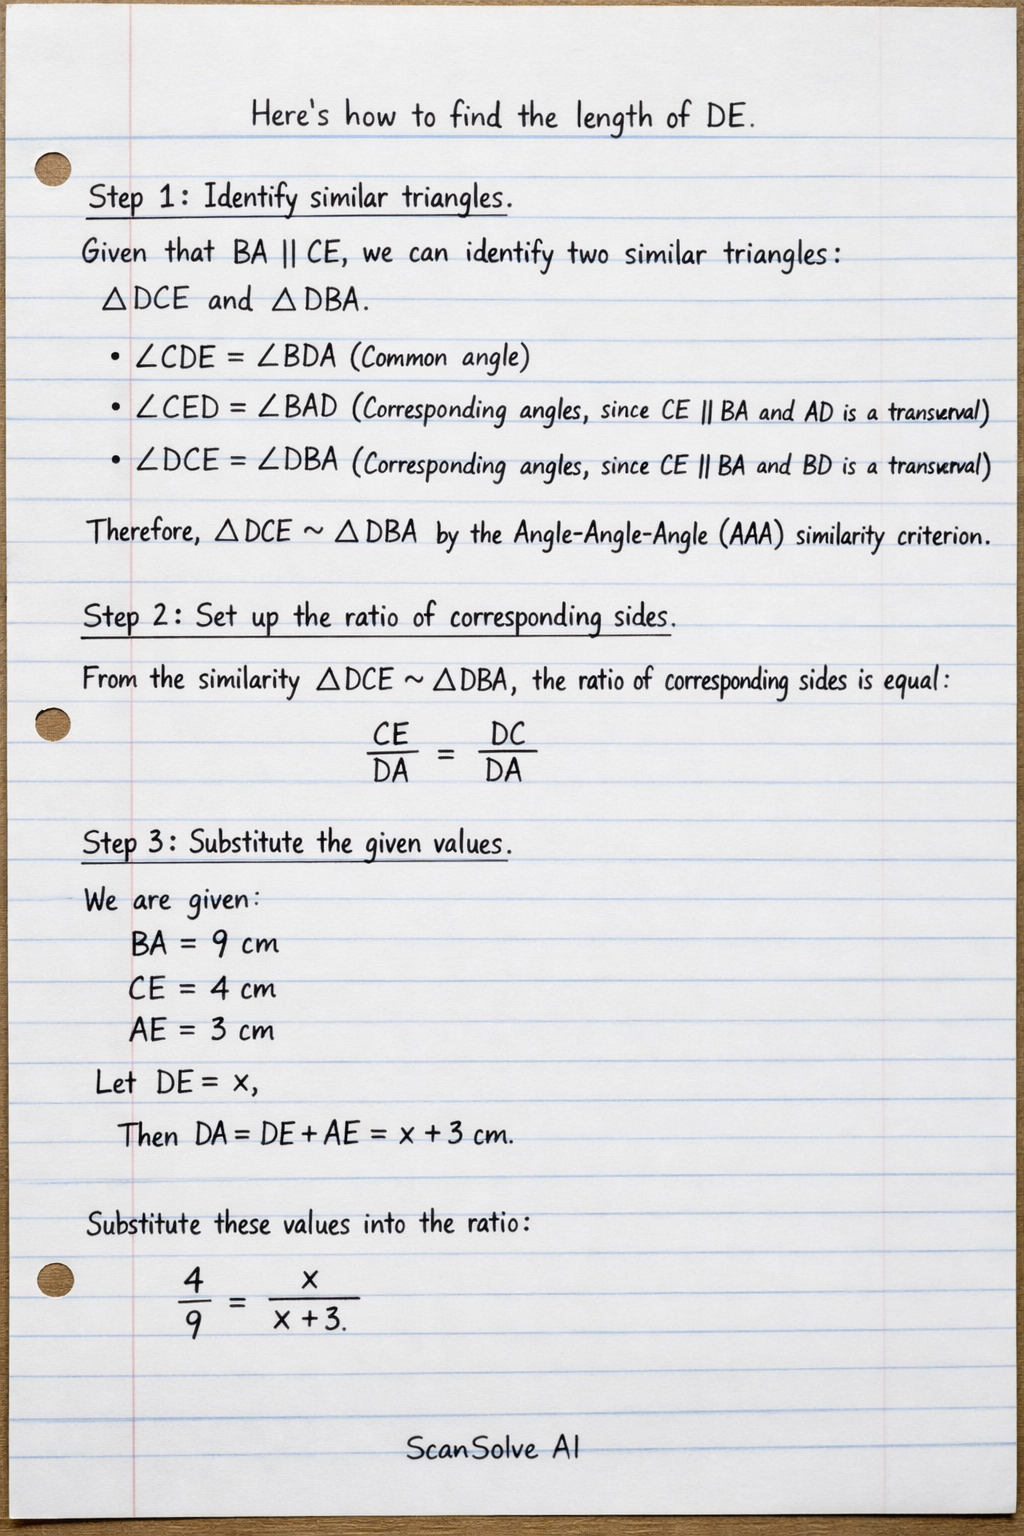 Here's how to find the length of DE.
Step 1: Identify similar triangles.
Given that BA || CE, we can identify two similar triangles:
△DCE and △DBA.
• ∠CDE = ∠BDA (Common angle)
• ∠CED = ∠BAD (Corresponding angles, since CE || BA and AD is a transversal)
• ∠DCE = ∠DBA (Corresponding angles, since CE || BA and BD is a transversal)
Therefore, △DCE ~ △DBA by the Angle-Angle-Angle (AAA) similarity criterion.
Step 2: Set up the ratio of corresponding sides.
From the similarity △DCE ~ △DBA, the ratio of corresponding sides is equal:
CE/DA = DC/DA
Step 3: Substitute the given values.
We are given:
BA = 9 cm
CE = 4 cm
AE = 3 cm
Let DE = x,
Then DA = DE + AE = x + 3 cm.
Substitute these values into the ratio:
4/9 = x/x + 3.
ScanSolve AI